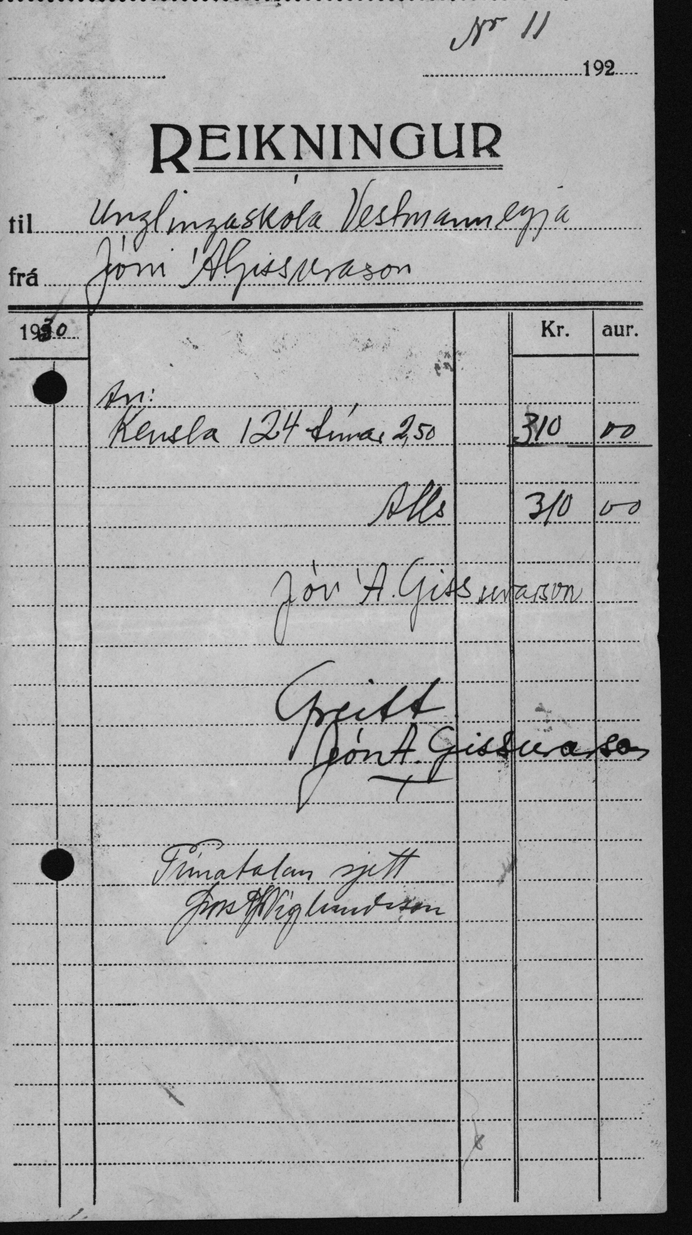 Nr 11
192
REIKNINGUR
til Unglingaskóla Vestmanneyja
frá Jóni Á Gissurarson
1930 Kr. aur.
An:
Kensla 124 tímar 2,50 310 00
Alls 310 00
Jón Á. Gissurarson
Greitt
Jón Á. Gissurarson
Tímatalan rjett
Þorst Þ Víglundsson